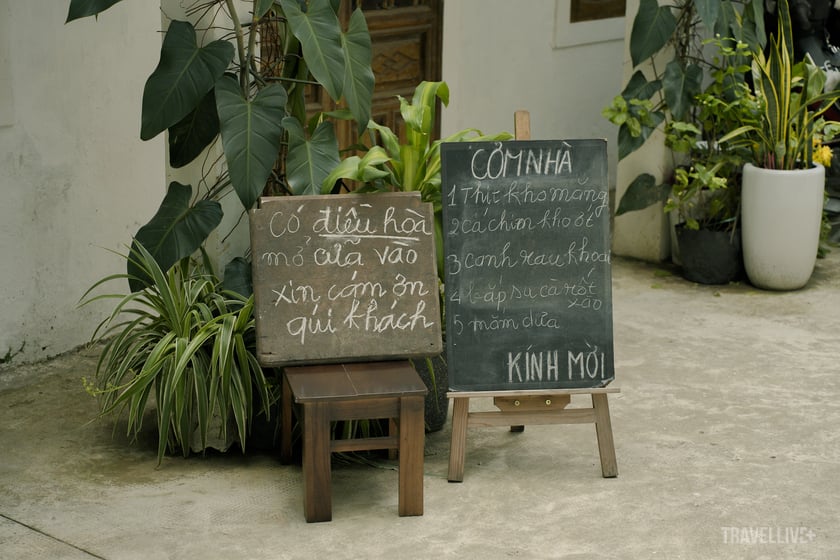 CÓ điều hòa
mở cửa vào
xin cám ơn
qúi khách
CƠM NHÀ
1 Thịt kho măng
2 cá chim kho ớt
3 canh rau khoai
4 bắp su cà rốt
xào
5 mắm dưa
KÍNH MỜI
TRAVELLIVE+